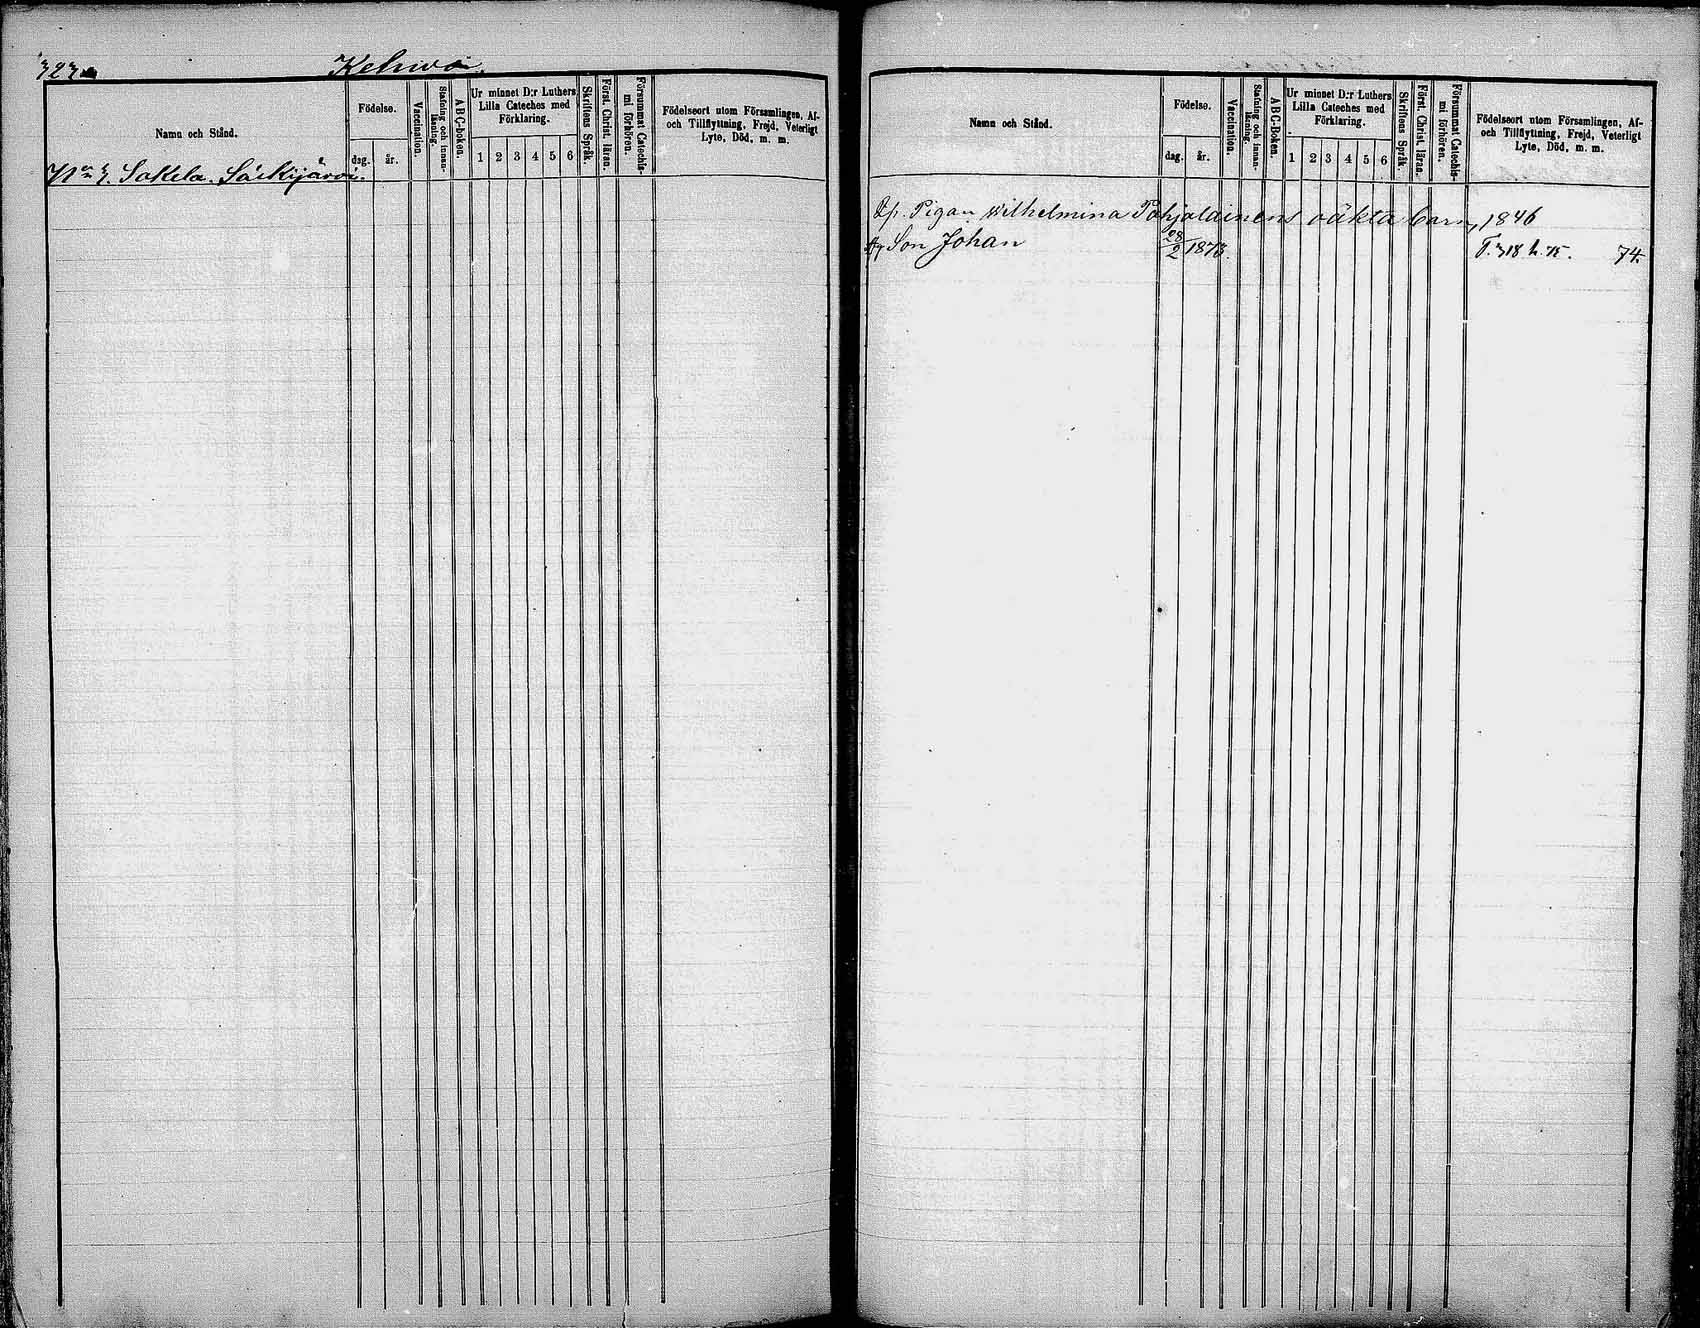 323
Kehwä.
Namn och Stånd.
Födelse.
dag.
år.
Vaccination.
Stafning och innan-
läsning.
ABC-boken.
Ur minnet D:r Luthers
Lilla Cateches med
Förklaring.
1 2 3 4 5 6
Skriftens Språk.
Först. Christ. läran.
Försummat Catechis-
mi förhören.
Födelseort utom Församlingen, Af-
och Tillflyttning, Frejd, Veterligt
Lyte, Död, m. m.
Särkijärvi.
Namn och Stånd.
Födelse.
dag.
år.
Vaccination.
Stafning och innan-
läsning.
ABC-Boken.
Ur minnet D:r Luthers
Lilla Cateches med
Förklaring.
1 2 3 4 5 6
Skriftens Språk.
Först. Christ. läran.
Försummat Catechis-
mi förhören.
Födelseort utom Församlingen, Af-
och Tillflyttning, Frejd, Veterligt
Lyte, Död, m. m.
Pigan Wilhelmina Pohjolainens oäkta barn, 1846
Son Johan 28/2 1873. T. 318 h. 75. 74.